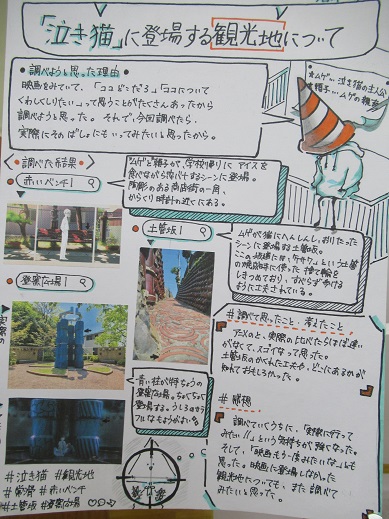 「泣き猫」に登場する観光地について
・調べようと思った理由・
映画をみていて、「ココどこだろ?」「ココについて
くわしくしりたい」って思うことがたくさんあったから
調べようと思った。それで、今回調べたら、
実際にそのばしょにもいってみたいと思ったから。
*ムゲ…泣き猫の主人公
*頼子…ムゲの親友
調べた結果
赤いベンチ!
ムゲと頼子が、学校帰りにアイスを
食べながら飛バナするシーンに登場。
陶彫のある商店街の一角、
からくり時計の近くにある。
土管坂!
ムゲが猫にへんしんし、おりたった
シーンに登場する土管坂。
この坂道には、"ケサワ"という土管
の焼成時に使った捨て輪を
しきつめており、すべらず歩ける
ように工夫されている。
登窯広場!
青い柱が特ちょうの
登窯広場。ちょくちょく
登場する。うしろのまる
アルなもようがよいる。
実際の
#調べて思ったこと・考えたこと
アニメのと、実際の比べたらほぼ違い
がなくて、スゴイなって思った。
土管坂のかくれた工夫や、どこにあるかが
知れておもしろかった。
#感想
調べていくうちに、「実際に行って
みたい!!」という気持ちが強くなった。
そして、「映画もう一度みたいな。」とも
思った。映画に登場しなかった
観光地についても、また調べて
みたいと思った。
#泣き猫 #観光地
#常滑 #赤いベンチ
#土管坂 #登窯広場